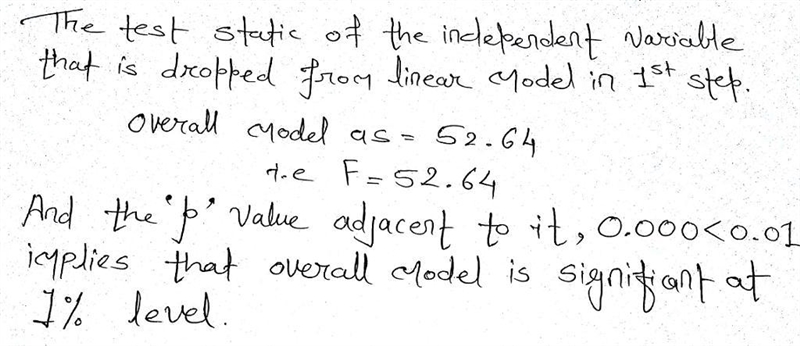 The test static of the independent variable
that is dropped from linear model in 1st step.
overall model as = 52.64
i.e F = 52.64
And the 'p' value adjacent to it, 0.000<0.01
implies that overall model is signifiant at
1% level.